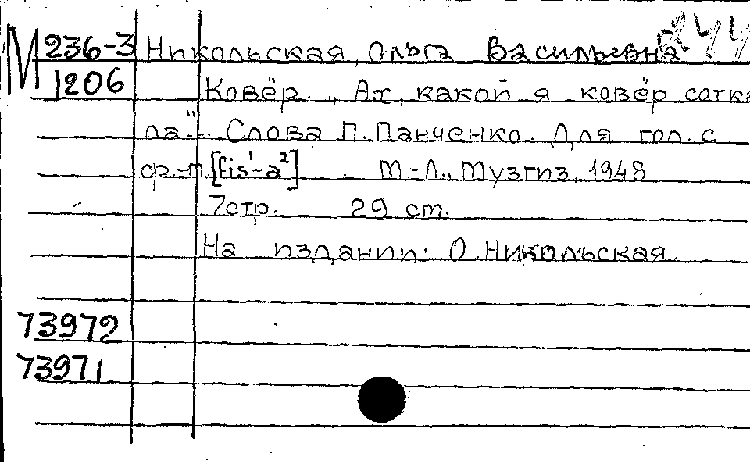 М 236-3 Никольская, Ольга Васильевна 244
1206 Ковёр. „Ах, какой я ковёр сотка
ла". Слова П. Панченко. Для гол. с
ф.-п. [fis¹-a²] М.-Л., Музгиз, 1948
7 стр. 29 см.
На издании: О. Никольская
73972
73971